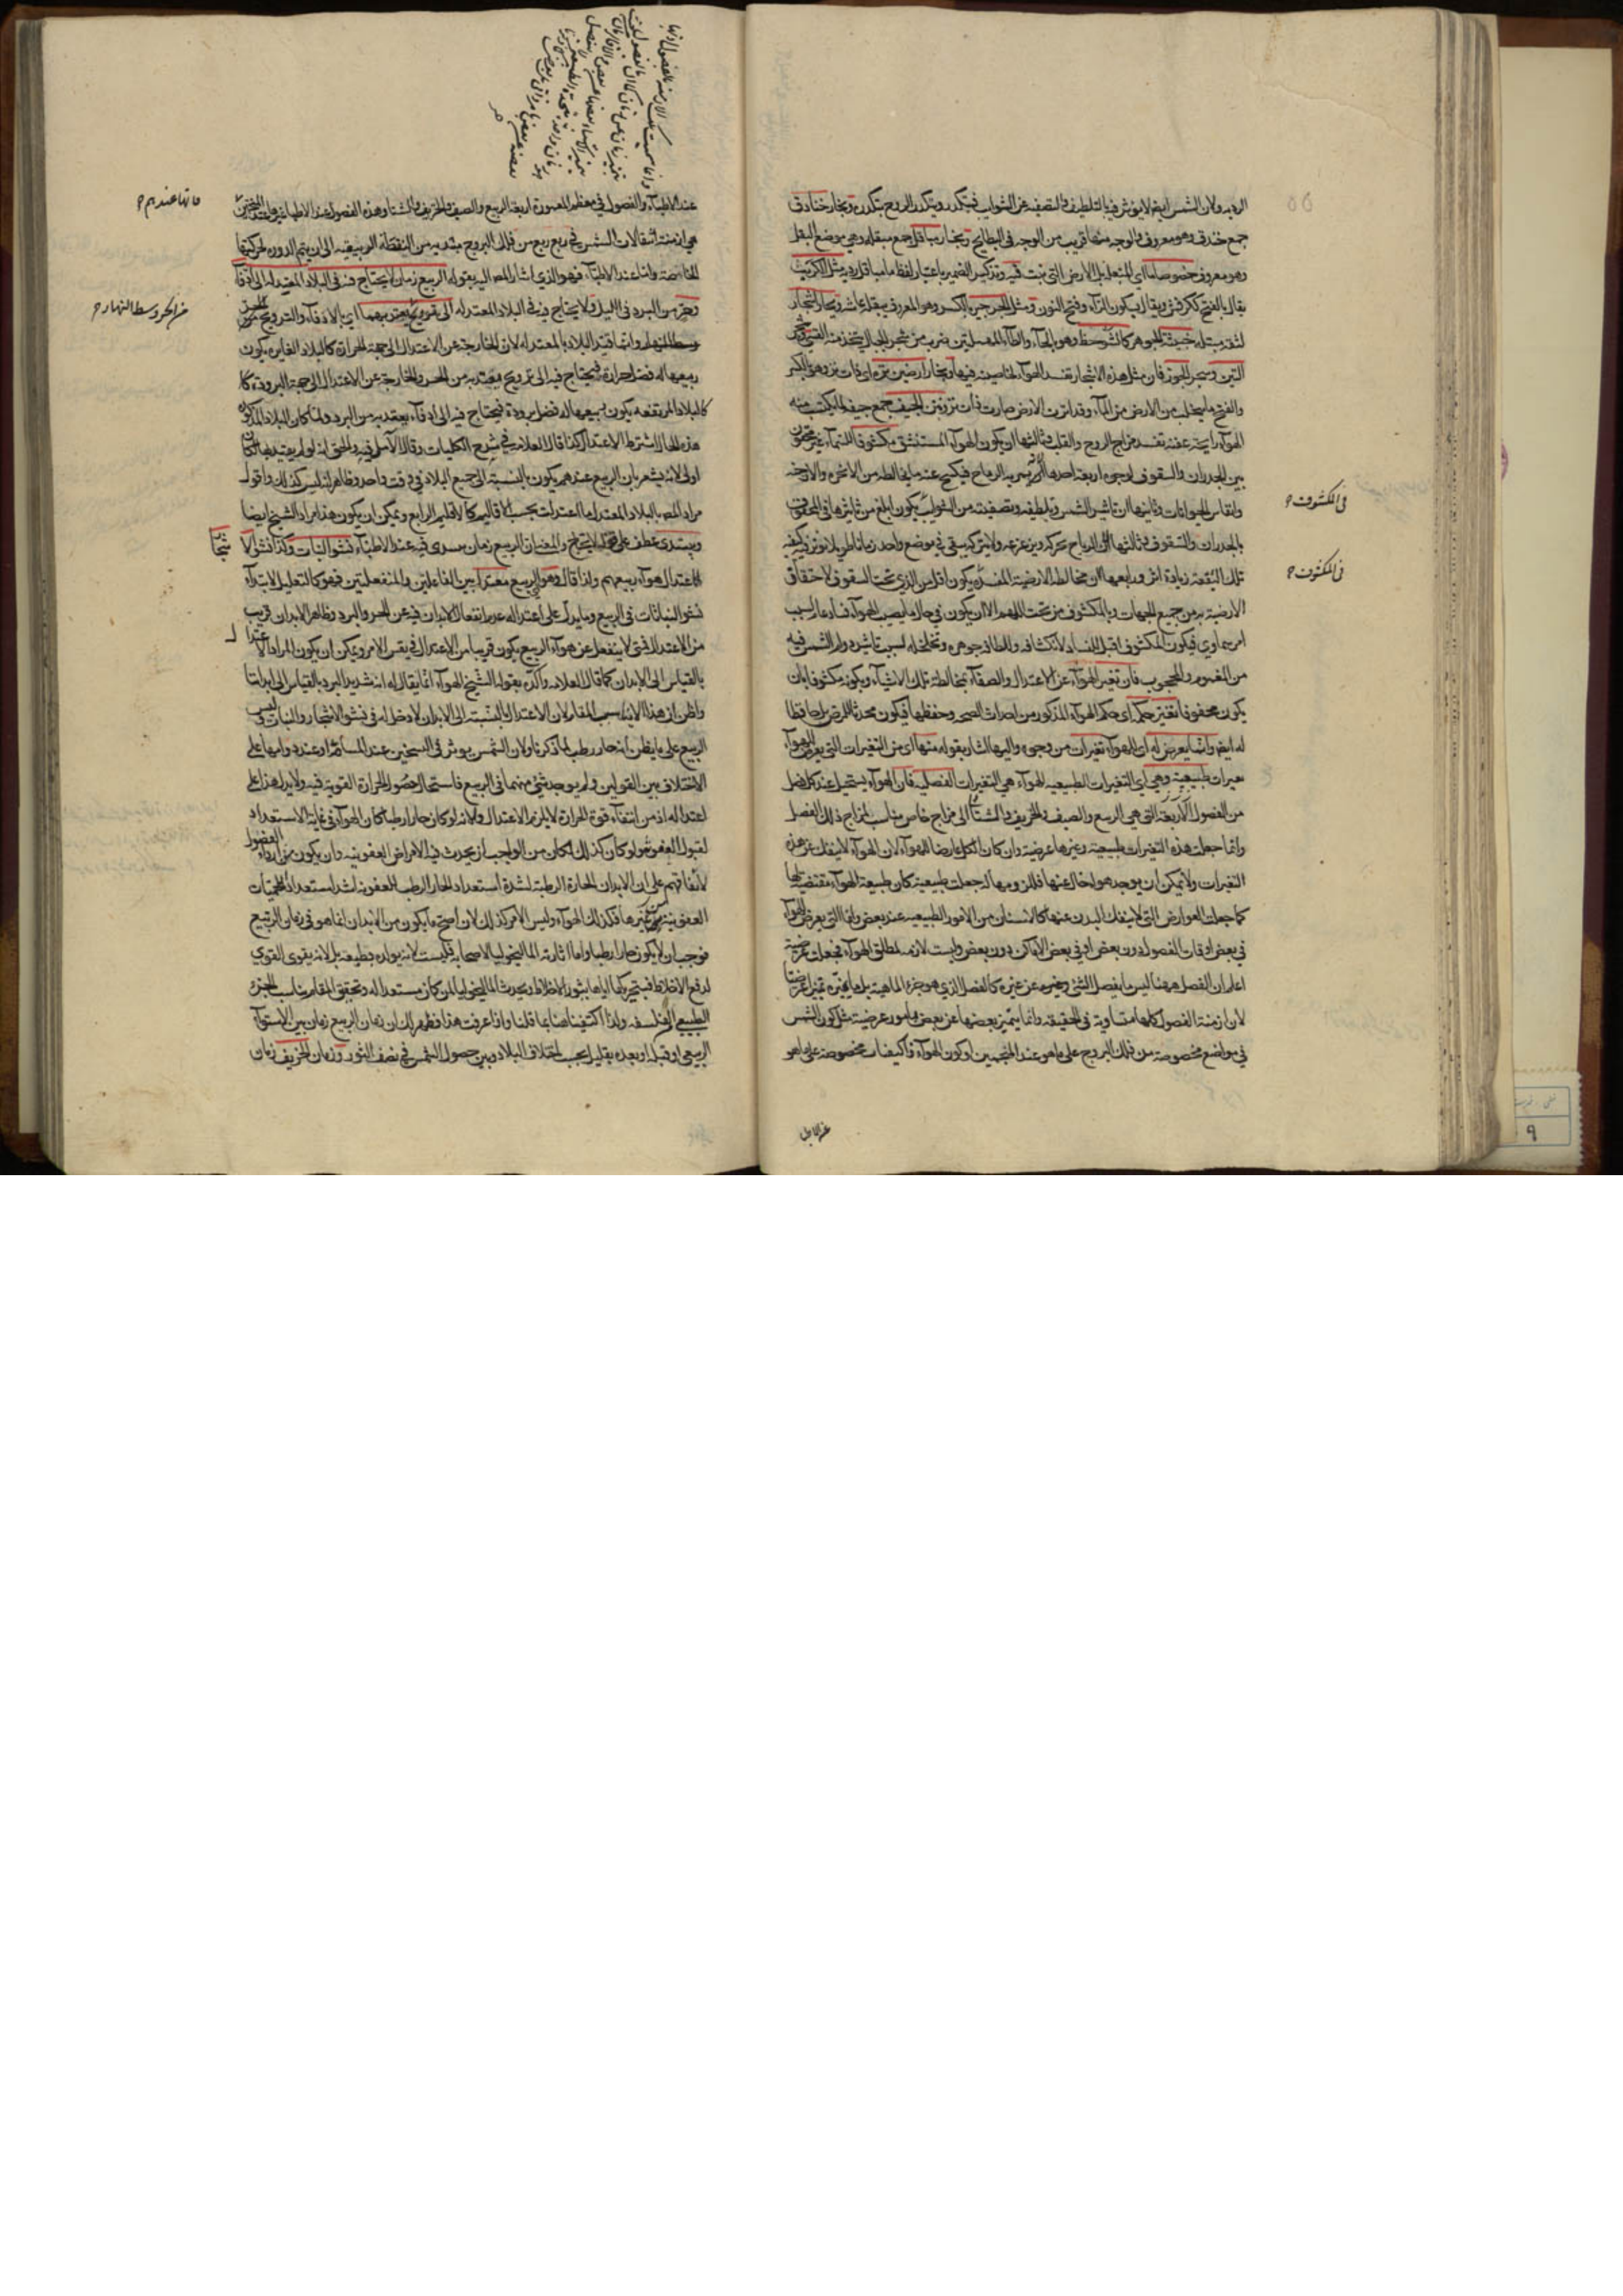 الردية ولان الشمس ايضا لا يؤثر فيه بالتلطيف والتصفية عن الشوايب فيتكدر ويتكدر الروح بتكدره وبخار خنادق
جمع خندق وهو معروف والوجه منها قريب من الوجه في البطايح وبخار مباقل جمع مبقلة وهي موضع البقل
وهو معروف خصوصا ما اي المبقلة بل الارض التي نبت فيه وتذكير الضمير باعتبار لفظ ما مباقل ردية مثل الكرنب
يقال بالفتح ككرفس ويقال بسكون الراء وفتح النون ومثل الجرجير بالكسر وهو المعروف ببقلة عايشة وبخار اشجار
خبيثة الجوهر كالشوحط وهو بالحاء والطاء المهملتين ضرب من شجر الجبال يتخذ منه القسي وشجر
التين وشجر الجوز فان مثل هذه الاشجار تفسد الهواء لخاصية فيها وبخار ارضين نزه اي ذات نز وهو بالكسر
والفتح ما يتحلب من الارض من الماء وقد انزت الارض صارت ذات نز ونتن الجيف جمع جيفة لما يكتسب منه
الهواء رايحة عفنة تفسد مزاج الروح والقلب وثالثها ان يكون الهواء المستنشق مكشوفا للسماء غير محقون
بين الجدران والسقوف لوجوه اربعة احدها ان تمر به الرياح فيكسح عنه ما يخالطه من الابخرة والادخنة
وانفاس الحيوانات وثانيها ان تاثير الشمس وتلطيفه وتصفيته من الشوايب يكون ابلغ من تاثيرها في المحقون
بالجدران والسقوف وثالثها ان الرياح تحركه وتزعزعه ولا يتركه يبقى في موضع واحد زمانا طويلا يؤثر فيه كيفية
تلك البقعة زيادة اثر ورابعها ان مخالطة الارضية المفسدة يكون اقل من الذي تحت السقوف لاحتقاق
الارضية به من جميع الجهات وبالمكشوف من تحت اللهم الا ان يكون في حال ما يصيب الهواء فساد عام لسبب
امر سماوي فيكون المكشوف اقبل للفساد لانكشافه ولطافة جوهره وتخلخله لسبب تاثير دوام الشمس فيه
من المغموم والمحجوب فان تغير الهواء عن الاعتدال والصفاء بمخالطة تلك الاشياء وبكونه مكشوفا بان
يكون محقونا تغير حكمه اي حكم الهواء المذكور من احداث الصحة وحفظها فيكون محدثا للمرض بل حافظا
له ايضا وانما يعرض له اي للهواء تغيرات من وجوه واليها اشار بقوله منها اي من التغيرات التي يعرض للهواء
تغيرات طبيعية وهي اي التغيرات الطبيعية للهواء هي التغيرات الفصلية فان الهواء يستحيل عند كل فصل
من الفصول الاربعة التي هي الربيع والصيف والخريف والشتاء الى مزاج خاص مناسب لمزاج ذلك الفصل
وانما جعلت هذه التغيرات طبيعية وغيرها عرضية وان كان الكل عارضا للهواء لان الهواء لا ينفك عن هذه
التغيرات ولا يمكن ان يوجد هواء خال عنها فللزومها له جعلت طبيعية كان طبيعة الهواء مقتضية لها
كما جعلت العوارض التي لا ينفك البدن عنها كالاسنان من الامور الطبيعية عند بعض واما التي يعرض للهواء
في بعض اوقات الفصول دون بعض او في بعض الاماكن دون بعض وليست لازمة لمطلق الهواء فجعلت عرضية
اعلم ان الفصل ههنا ليس ما يفصل الشئ وغيره عن غيره كالفصل الذي هو جزء الماهية بل ما يميزه تميزا عرضيا
لان ازمنة الفصول كلها متساوية في الحقيقة وانما يتميز بعضها عن بعض بامور عرضية مثل كون الشمس
في مواضع مخصوصة من فلك البروج على ما هو عند المنجمين او كون الهواء ذا كيفيات مخصوصة على ما هو
في المكشوف
في المكشوف
عند الاطباء
عند الاطباء والفصول في معظم المعمورة اربعة الربيع والصيف والخريف والشتا وهذه الفصول عند الاطباء غيرها عند المنجمين
هي ازمنة انتقالات الشمس في ربع ربع من فلك البروج مبتدية من النقطة الربيعية الى ان يتم الدورة بحركتها
الخاصة واما عند الاطباء فهو الذي اشار المص اليه بقوله الربيع زمان لا يحتاج فيه في البلاد المعتدلة الى ادفاء
وتحرز من البرد في الليل ولا يحتاج فيه في البلاد المعتدلة الى ترويح يعتد بهما اي بالادفاء والترويح
وسط النهار وانما قيد البلاد بالمعتدلة لان الخارجة عن الاعتدال الى جهة الحرارة كالبلاد الغايرة يكون
ربيعها له فضل حرارة فيحتاج فيه الى ترويح يعتد به من الحر والخارجة عن الاعتدال الى جهة البرودة كا
كالبلاد المرتفعة يكون ربيعها له فضل برودة فيحتاج فيه الى ادفاء يعتد به من البرد ولما كان البلاد المذكورة
هذه الحال اشترط الاعتدال كذا قال العلامة في شرح الكليات وقال الآملي فيه والحق انه لو لم يقيد بها لكان
اولى لانه يشعر بان الربيع عندهم يكون بالنسبة الى جميع البلاد في وقت واحد وظاهر انه ليس كذلك واقول
مراد المص بالبلاد المعتدلة ما اعتدلت بحسب الاقاليم كالاقليم الرابع ويمكن ان يكون هذا مراد الشيخ ايضا
ويبتدى عطف على قوله لا يحتاج والمعنى ان الربيع زمان يبتدى فيه عند الاطباء نشو النبات وكذا نشو الا
شجار
لاعتدال هواء ربيعهم ولذا قال وهو اي الربيع معتدل بين الفاعلتين والمنفعلتين فهو كالتعليل لابتداء
نشو النباتات في الربيع ومما يدل على اعتداله عدم انفعال الابدان فيه عن الحر والبرد وظاهر الابدان قريب
من الاعتدال فشئ لا ينفعل عن هواء الربيع يكون قريبا من الاعتدال في نفس الامر ويمكن ان يكون المراد الاعتدال
بالقياس الى الابدان كما قال العلامة واكده بقوله الشيخ الهواء انما يقال له انه شديد البرد بالقياس الى ابداننا
واظن ان هذا لا يناسب المقام لان الاعتدال بالنسبة الى الابدان لا دخل له في نشو الاشجار والنبات وليس
الربيع على ما يظن انه حار رطب لما ذكرنا ولان الشمس يؤثر في التسخين عند المسامتة او عند دوامها على
الاختلاف بين القولين ولم يوجد شئ منهما في الربيع فاستحال حصول الحرارة القوية فيه ولا يدل هذا على
اعتداله اذ من انتفاء قوة الحرارة لا يلزم الاعتدال ولانه لو كان حارا رطبا كان الهواء في غاية الاستعداد
لقبول العفونة ولو كان كذلك لكان من الواجب ان يحدث فيه الامراض العفونية وان يكون من اردأ الفصول
لاتفاقهم على ان الابدان الحارة الرطبة لشدة استعداد الحار الرطب للعفونة اشد استعدادا للحميات
العفونية من غيرها فكذلك الهواء وليس الامر كذلك لان اصح ما يكون من الابدان انما هو في زمان الربيع
فوجب ان لا يكون حارا رطبا واما اثارته الماليخوليا لاصحابه فليست لانه يولده بطبعه بل لانه يقوى القوى
لدفع الاخلاط فيتحريكها اياها يثور الاخلاط ويحدث الماليخوليا لمن كان مستعدا له وتحقيق المقام يناسب الجزء
الطبيعي من الفلسفة ولذا اكتفينا ههنا بما قلنا واذا عرفت هذا فظهر لك ان زمان الربيع زمان بين الاستواء
الربيعي او قبله او بعده بقليل بحسب اختلاف البلاد وبين حصول الشمس في نصف الثور وزمان الخريف زمان
فانها عندهم
من الحر وسط النهار